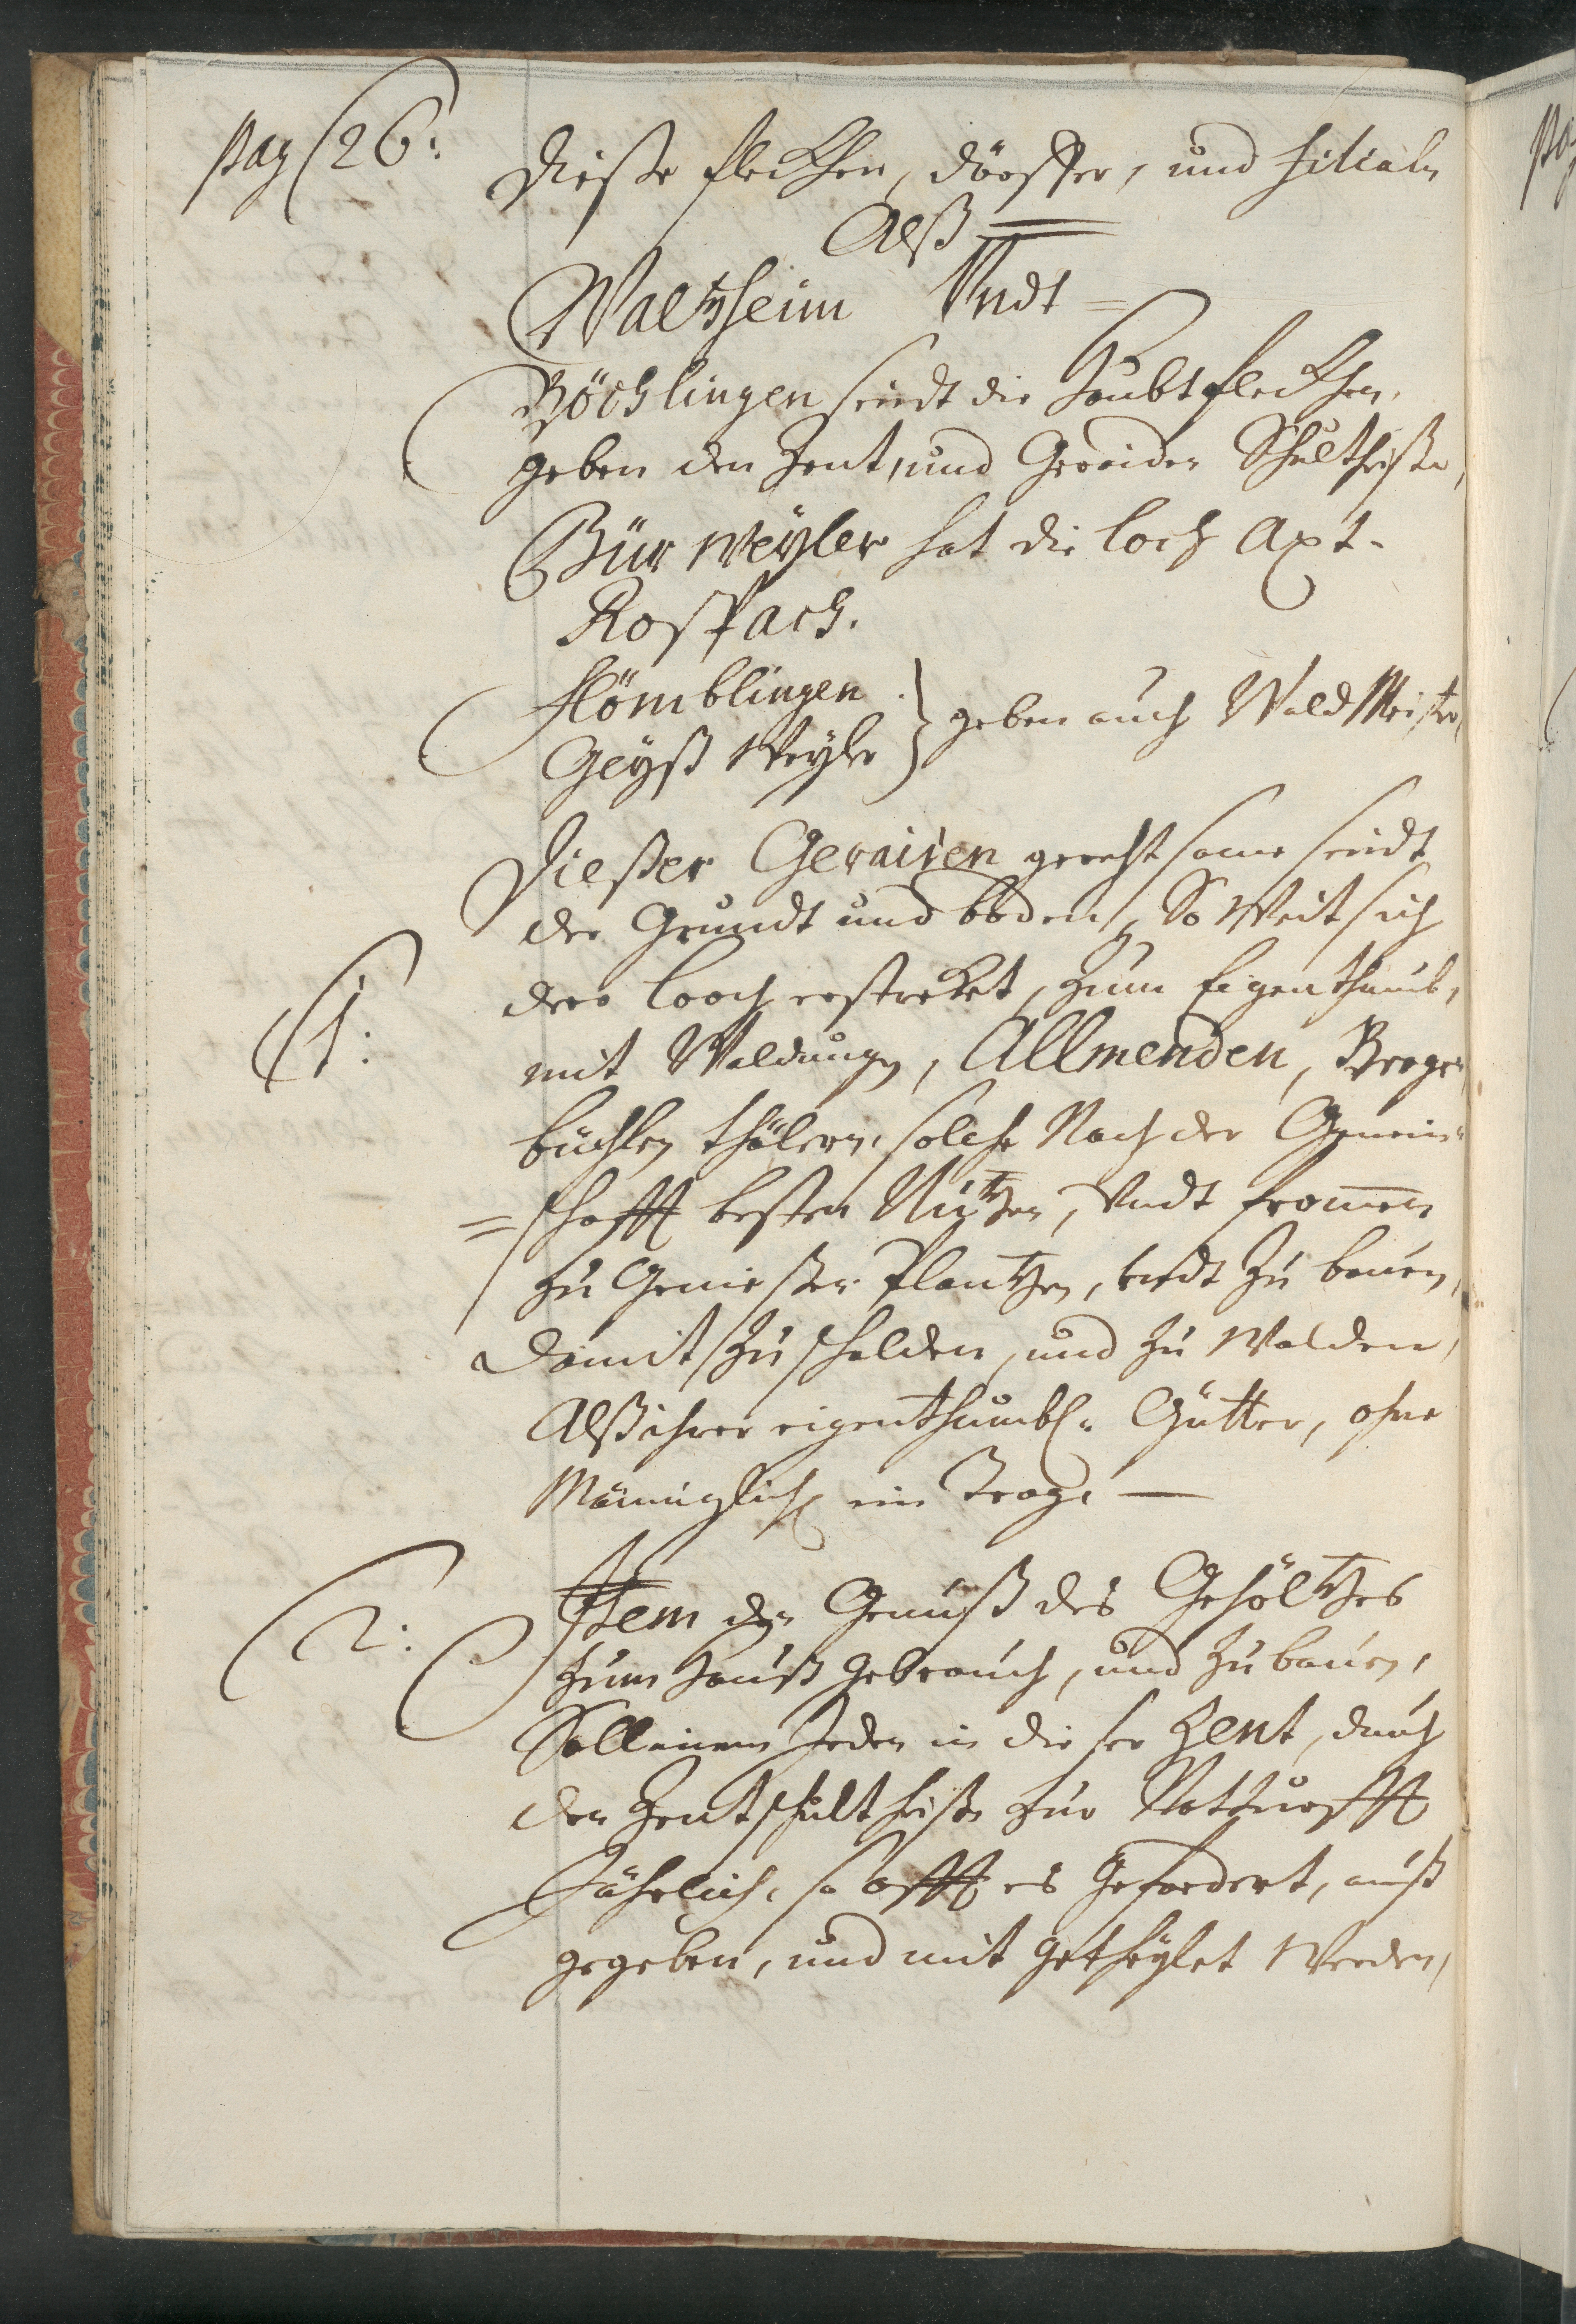 pag 26:
Dieße fleckhen, dörffer, und filialn
Alß
Waltzheim Undt =
Böchlingen seindt die Haubt fleckhen,
geben den Zent, und Geraiden Schultheiße,
Bürweyler hat die Loch Axt.
Rospach.
Flömblingen
Geyßweyler } geben auch Wald Meister,
Dießer Geraiten gerechtsame seindt
der Grundt und boden, So Weit sich
1:
dero Looch erstrekket, zum Eigenthumb,
mit Waldungen, Allmenden, Berge,
büchlen thälern, solche Nach der Gemein-
= schafft besten Nutzen, Undt frommen
zu Genießen Plantzen, undt zu bauen,
damit zu schalden, und zu Walden,
Alß ihrer eigenthumbl: Gütter, ohne
Männiglich ein Trag. —
2:
Item der Genuß des Gehöltzes
zum Hauß Gebrauch, und zu bauen,
Soll einem Jeden in dießer Zent, durch
den Zentschultheißen zur Notturfft
Jährlich, so offt es Gefordert, auß
gegeben, und mit getheylet Werden,